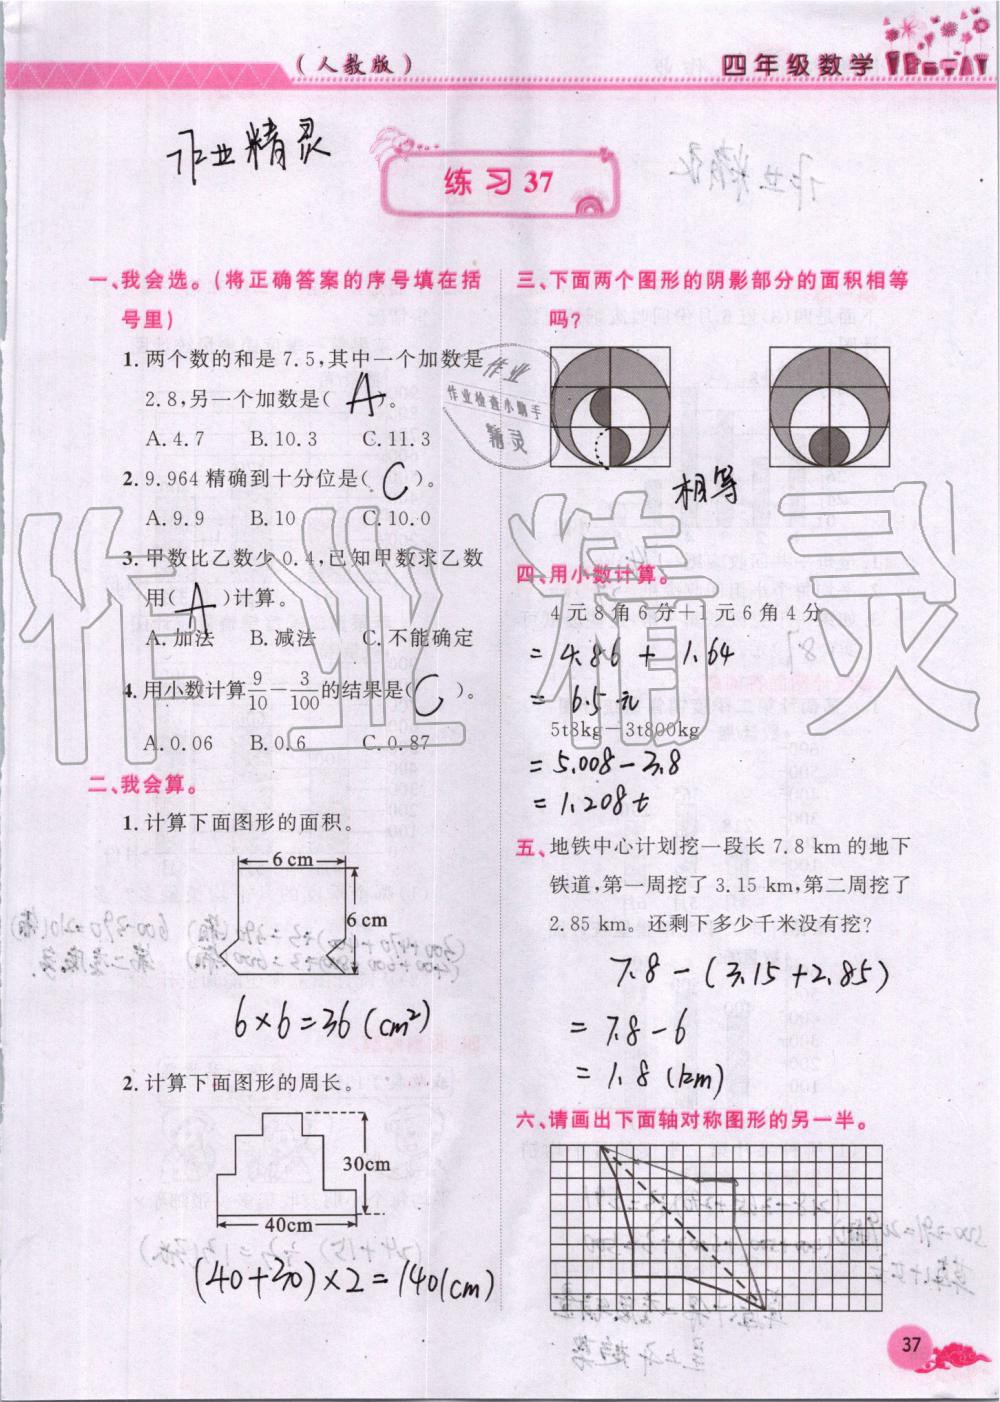 (人教版)
四年级数学
作业精灵
练习37
一、我会选。(将正确答案的序号填在括
号里)
1. 两个数的和是7.5,其中一个加数是
2.8,另一个加数是( A )。
A. 4.7 B. 10.3 C. 11.3
2. 9.964精确到十分位是( C )。
A. 9.9 B. 10 C. 10.0
3. 甲数比乙数少0.4,已知甲数求乙数
用( A )计算。
A. 加法 B. 减法 C. 不能确定
4. 用小数计算9/10-3/100的结果是( C )。
A. 0.06 B. 0.6 C. 0.87
二、我会算。
1. 计算下面图形的面积。
6 cm
6 cm
6×6=36(cm²)
2. 计算下面图形的周长。
30cm
40cm
(40+30)×2=140(cm)
三、下面两个图形的阴影部分的面积相等
吗?
作业
作业检查小助手
精灵
相等
四、用小数计算。
4元8角6分+1元6角4分
=4.86+1.64
=6.5元
5t8kg-3t800kg
=5.008-3.8
=1.208t
五、地铁中心计划挖一段长7.8 km的地下
铁道,第一周挖了3.15 km,第二周挖了
2.85 km。还剩下多少千米没有挖?
7.8-(3.15+2.85)
=7.8-6
=1.8(km)
六、请画出下面轴对称图形的另一半。
37
作业精灵